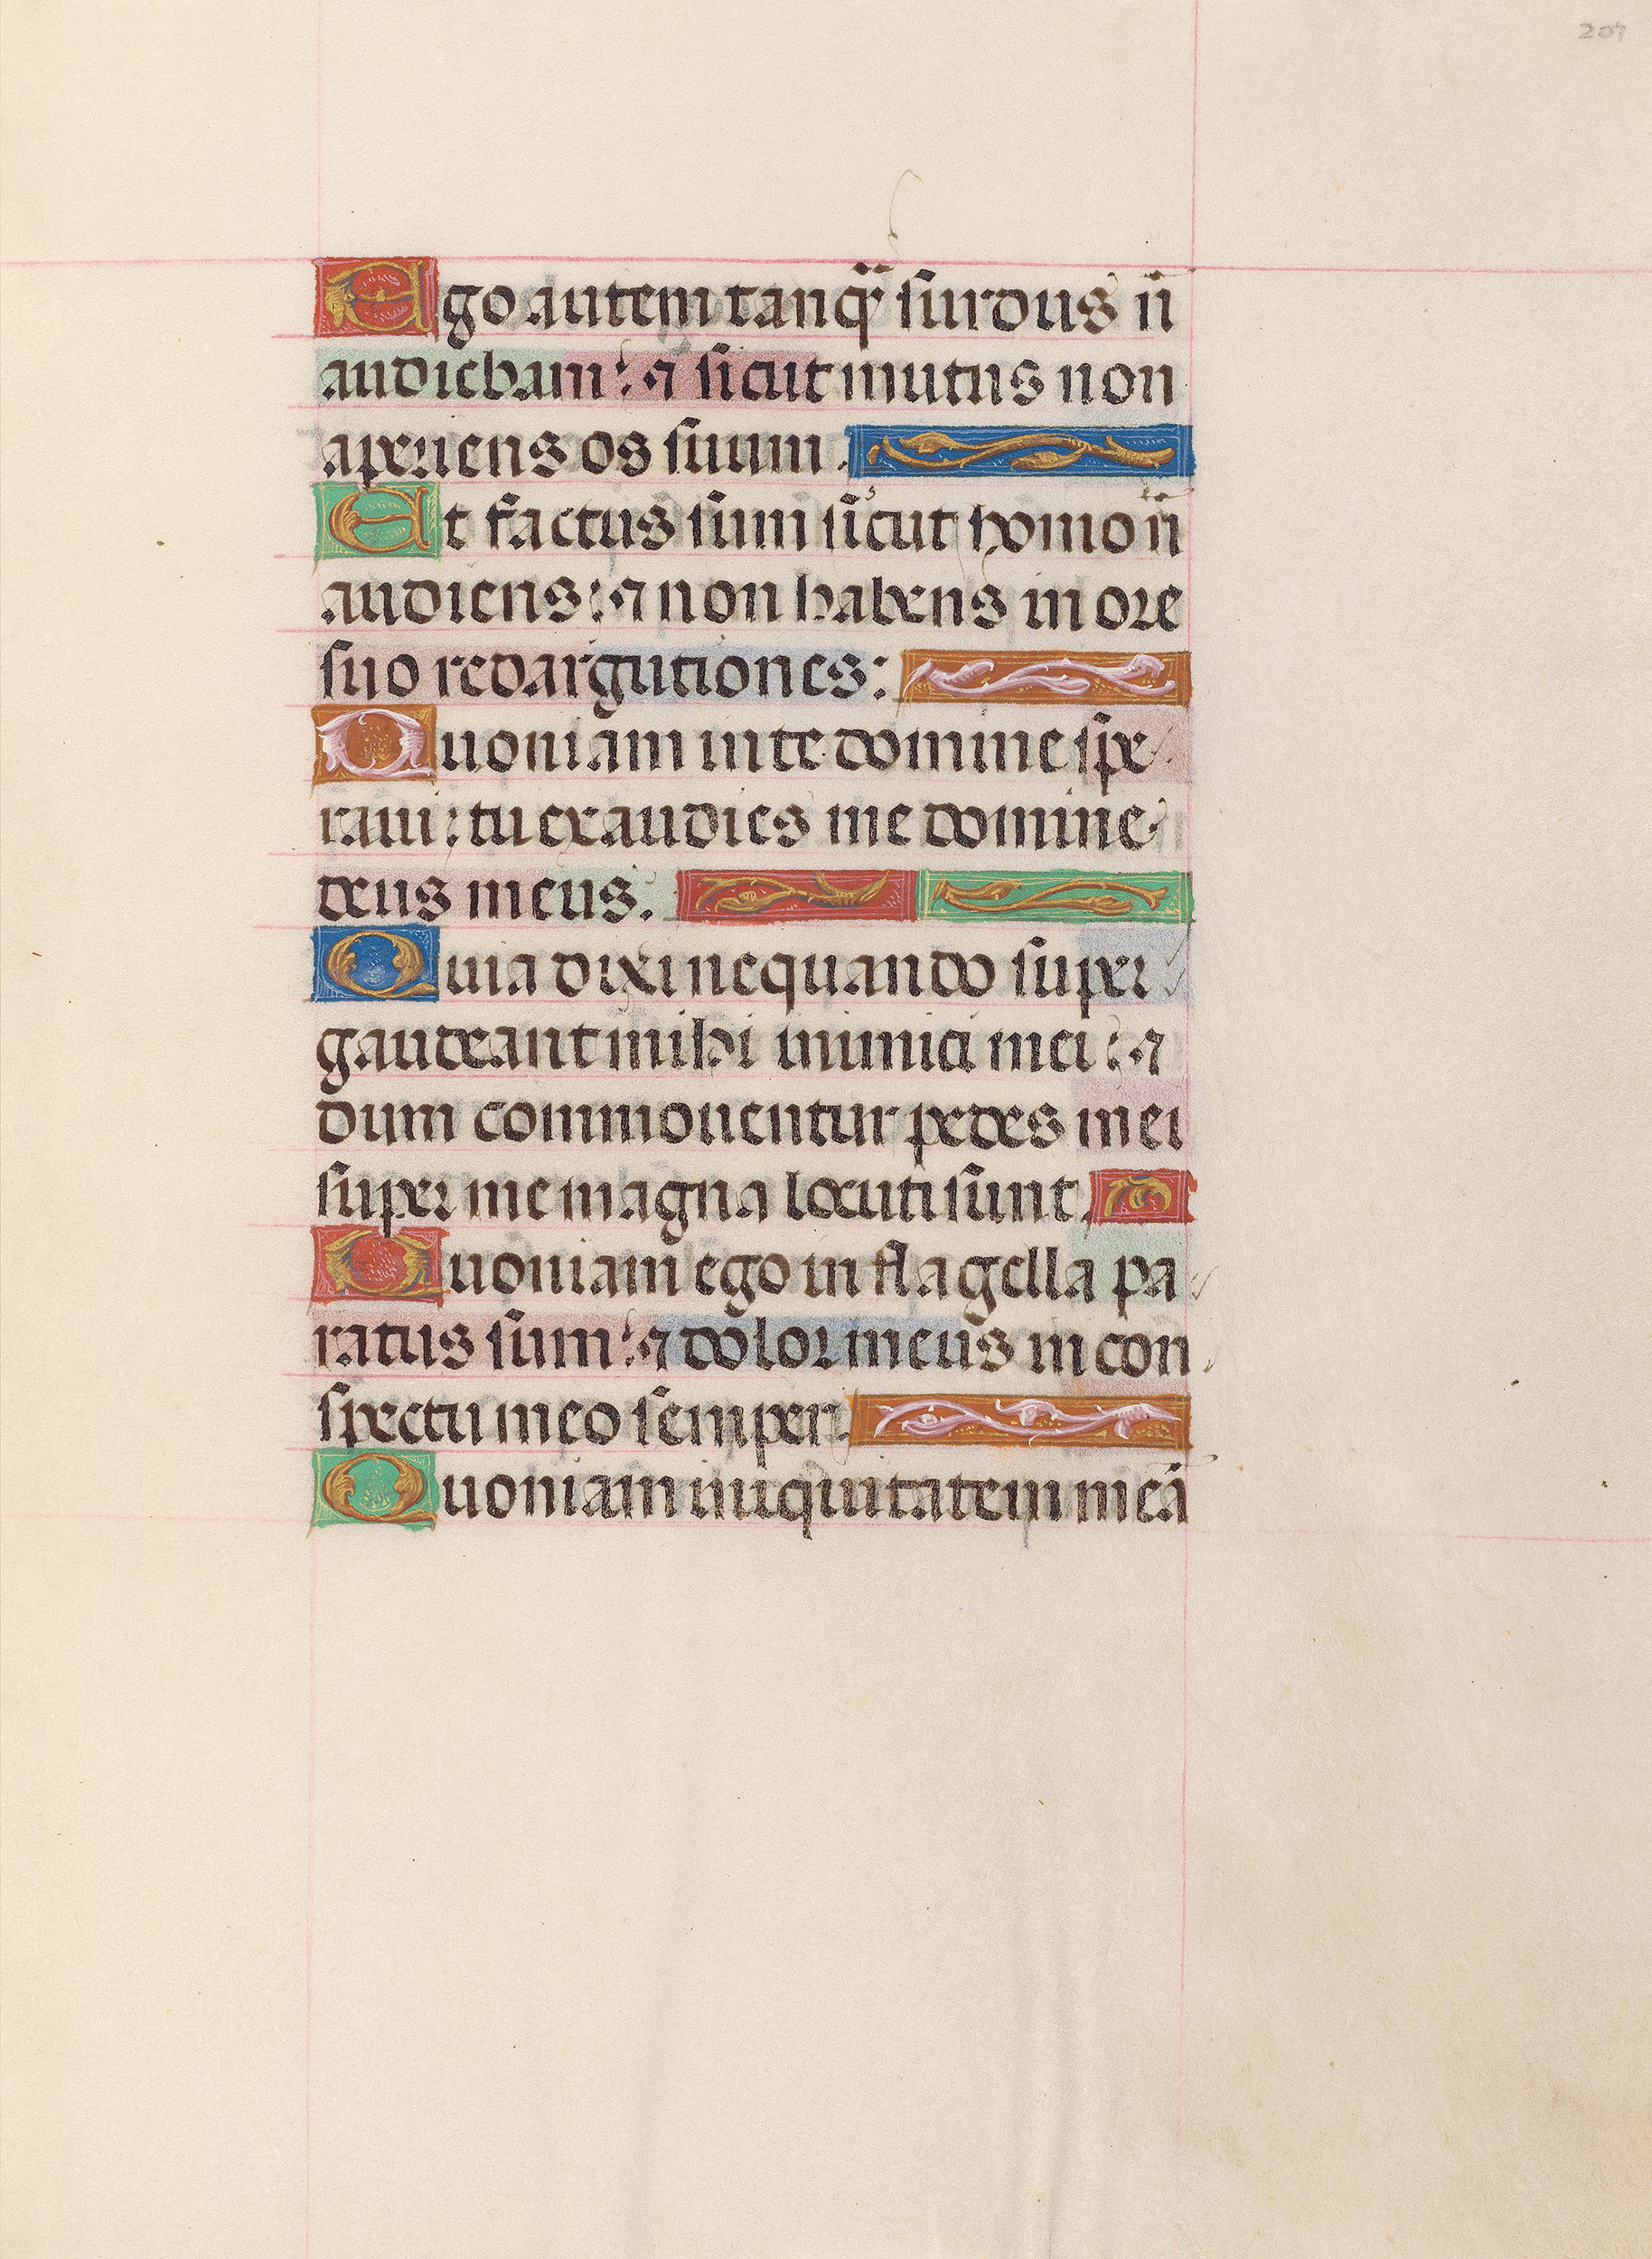 207
Ego autem tanq̃ surdus ñ
audiebam: ⁊ sicut mutus non
aperiens os suum.
Et factus sum sicut homo ñ
audiens: ⁊ non habens in ore
suo redargutiones:
Quoniam in te domine spe
raui: tu exaudies me domine
deus meus.
Quia dixi nequando super
gaudeant mihi inimici mei: ⁊
dum commouentur pedes mei
super me magna locuti sunt.
Quoniam ego in flagella pa
ratus sum: ⁊ dolor meus in con
spectu meo semper.
Quoniam iniquitatem meā